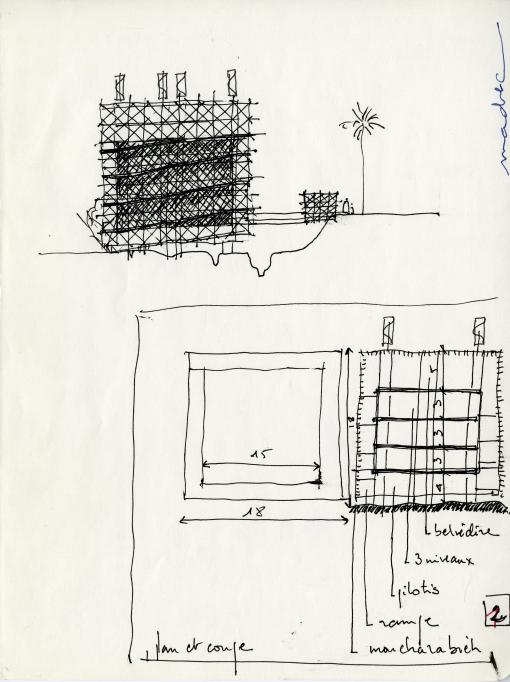 madec
15
18
18
5
3
3
3
4
belvédère
3 niveaux
pilotis
rampe
moucharabieh
plan et coupe
2